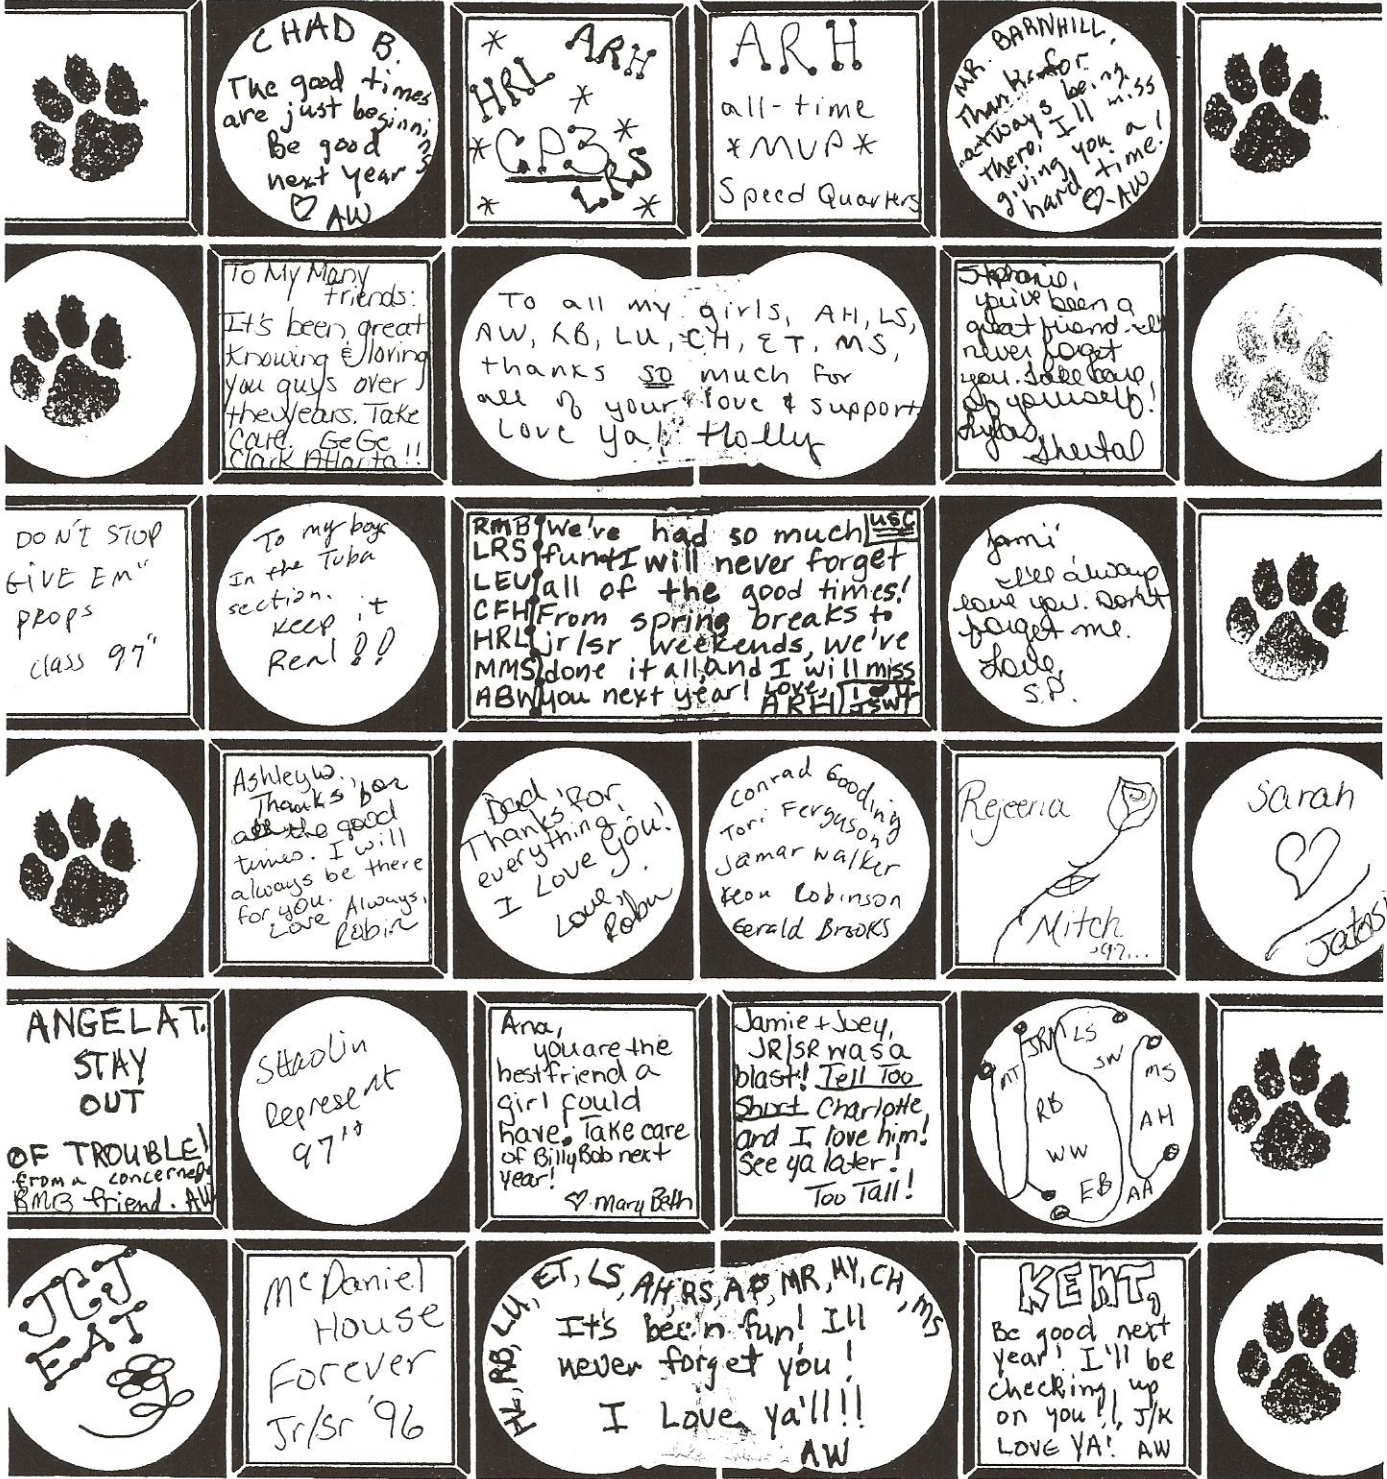 CHAD B.
The good times
are just beginning
Be good
next year
♡ AW
HRL
ARH
C.P.3
LRS
ARH
all-time
*MVP*
Speed Quarters
MR. BARNHILL,
Thanks for
always being
there, I'll miss
giving you a
hard time!
♡-AW
To My Many
friends:
It's been great
Knowing & loving
you guys over
the years. Take
Care. GeGe
Clark Atlanta!!
To all my girls, AH, LS,
AW, RB, LU, CH, ET, MS,
thanks so much for
all of your love & support
Love ya! Holly
Stephanie,
you've been a
great friend. I'll
never forget
you. Take care
of yourself!
Sheetal
DON'T STOP
GIVE EM"
PROPS
class 97"
To my boys
In the Tuba
section.
Keep it
Real!!
RMB We've had so much usc
LRS fun & I will never forget
LEU all of the good times!
CFH From spring breaks to
HRL jr/sr weekends, we've
MMS done it all, and I will miss
ABW you next year! Love, ARH
Jami
I'll always
love you. Don't
forget me.
Love,
S.P.
Ashley W.,
Thanks for
all the good
times. I will
always be there
for you.
Love Always,
Robin
Dad,
Thanks for
everything.
I Love You!
Love,
Robin
Conrad Gooding
Tori Ferguson
Jamar Walker
Keon Robinson
Gerald Brooks
Rejeena
Mitch
Sarah
ANGELA T.
STAY
OUT
OF TROUBLE!
From a concerned
BMB friend. AW
Shaolin
Represent
97"
Ana,
you are the
best friend a
girl could
have. Take care
of Billy Bob next
year!
♡ Mary Beth
Jamie + Joey,
JR/SR was a
blast! Tell Too
Short Charlotte,
and I love him!
See ya later!
Too Tall!
LS
MT
SW
MS
RB
AH
WW
EB
AA
JCJ
EAT
McDaniel
House
Forever
Jr/Sr '96
HL, RB, LU, ET, LS, AH, RS, AP, MR, MY, CH, MS
It's been fun! I'll
never forget you!
I Love ya'll!!
AW
KENT,
Be good next
year! I'll be
checking up
on you!!, J/K
LOVE YA! AW